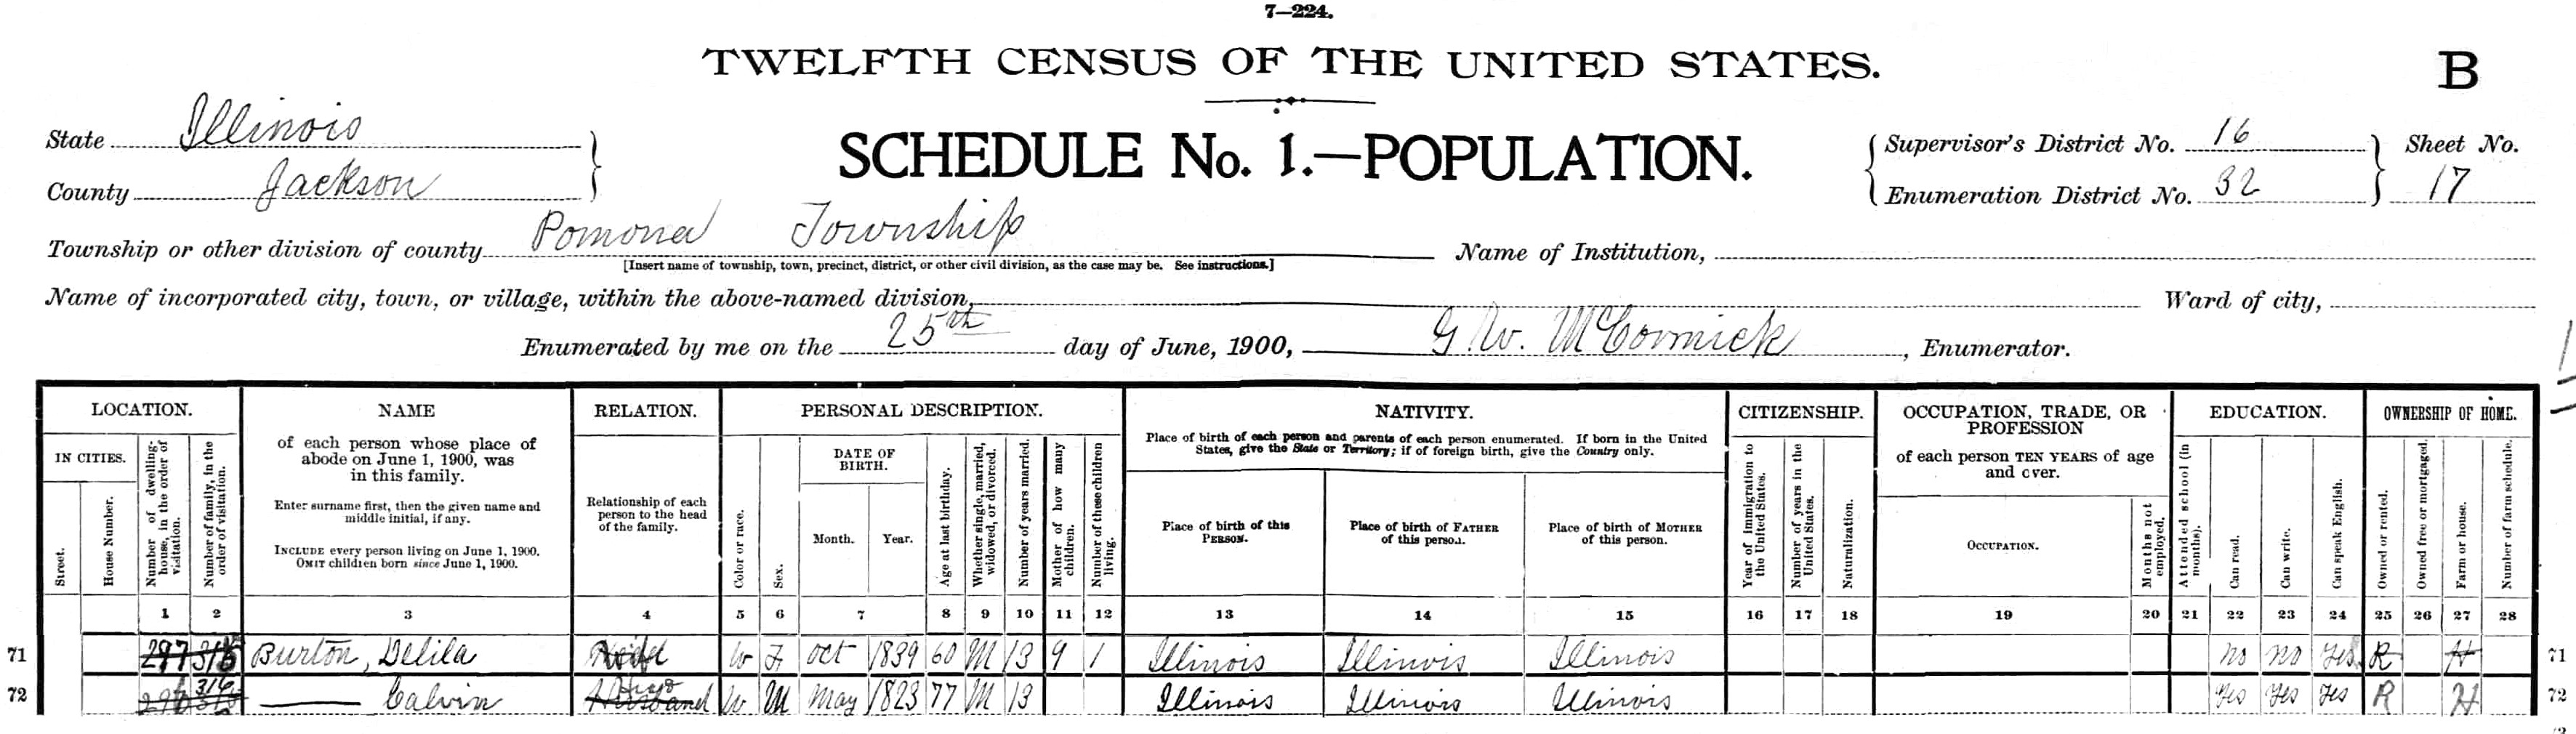 7—224.
TWELFTH CENSUS OF THE UNITED STATES.
B
State Illinois
County Jackson
SCHEDULE No. 1.—POPULATION.
Supervisor's District No. 16
Enumeration District No. 32
Sheet No.
17
Township or other division of county Pomona Township
[Insert name of township, town, precinct, district, or other civil division, as the case may be. See instructions.]
Name of Institution,
Name of incorporated city, town, or village, within the above-named division,
Ward of city,
Enumerated by me on the 25th day of June, 1900, G. W. McCormick, Enumerator.
LOCATION.
IN CITIES.
Street.
House Number.
Number of dwelling-house, in the order of visitation.
Number of family, in the order of visitation.
NAME
of each person whose place of
abode on June 1, 1900, was
in this family.
Enter surname first, then the given name and
middle initial, if any.
INCLUDE every person living on June 1, 1900.
OMIT children born since June 1, 1900.
RELATION.
Relationship of each
person to the head
of the family.
PERSONAL DESCRIPTION.
Color or race.
Sex.
DATE OF
BIRTH.
Month.
Year.
Age at last birthday.
Whether single, married, widowed, or divorced.
Number of years married.
Mother of how many children.
Number of these children living.
NATIVITY.
Place of birth of each person and parents of each person enumerated. If born in the United
States, give the State or Territory; if of foreign birth, give the Country only.
Place of birth of this
PERSON.
Place of birth of FATHER
of this person.
Place of birth of MOTHER
of this person.
CITIZENSHIP.
Year of immigration to the United States.
Number of years in the United States.
Naturalization.
OCCUPATION, TRADE, OR
PROFESSION
of each person TEN YEARS of age
and over.
OCCUPATION.
Months not employed.
EDUCATION.
Attended school (in months).
Can read.
Can write.
Can speak English.
OWNERSHIP OF HOME.
Owned or rented.
Owned free or mortgaged.
Farm or house.
Number of farm schedule.
1 2 3 4 5 6 7 8 9 10 11 12 13 14 15 16 17 18 19 20 21 22 23 24 25 26 27 28
71 297 Burton, Delila W F Oct 1839 60 M 13 9 1 Illinois Illinois Illinois no no Yes R H 71
72 316 —— Calvin Husband W M May 1823 77 M 13 Illinois Illinois Illinois Yes Yes Yes R H 72